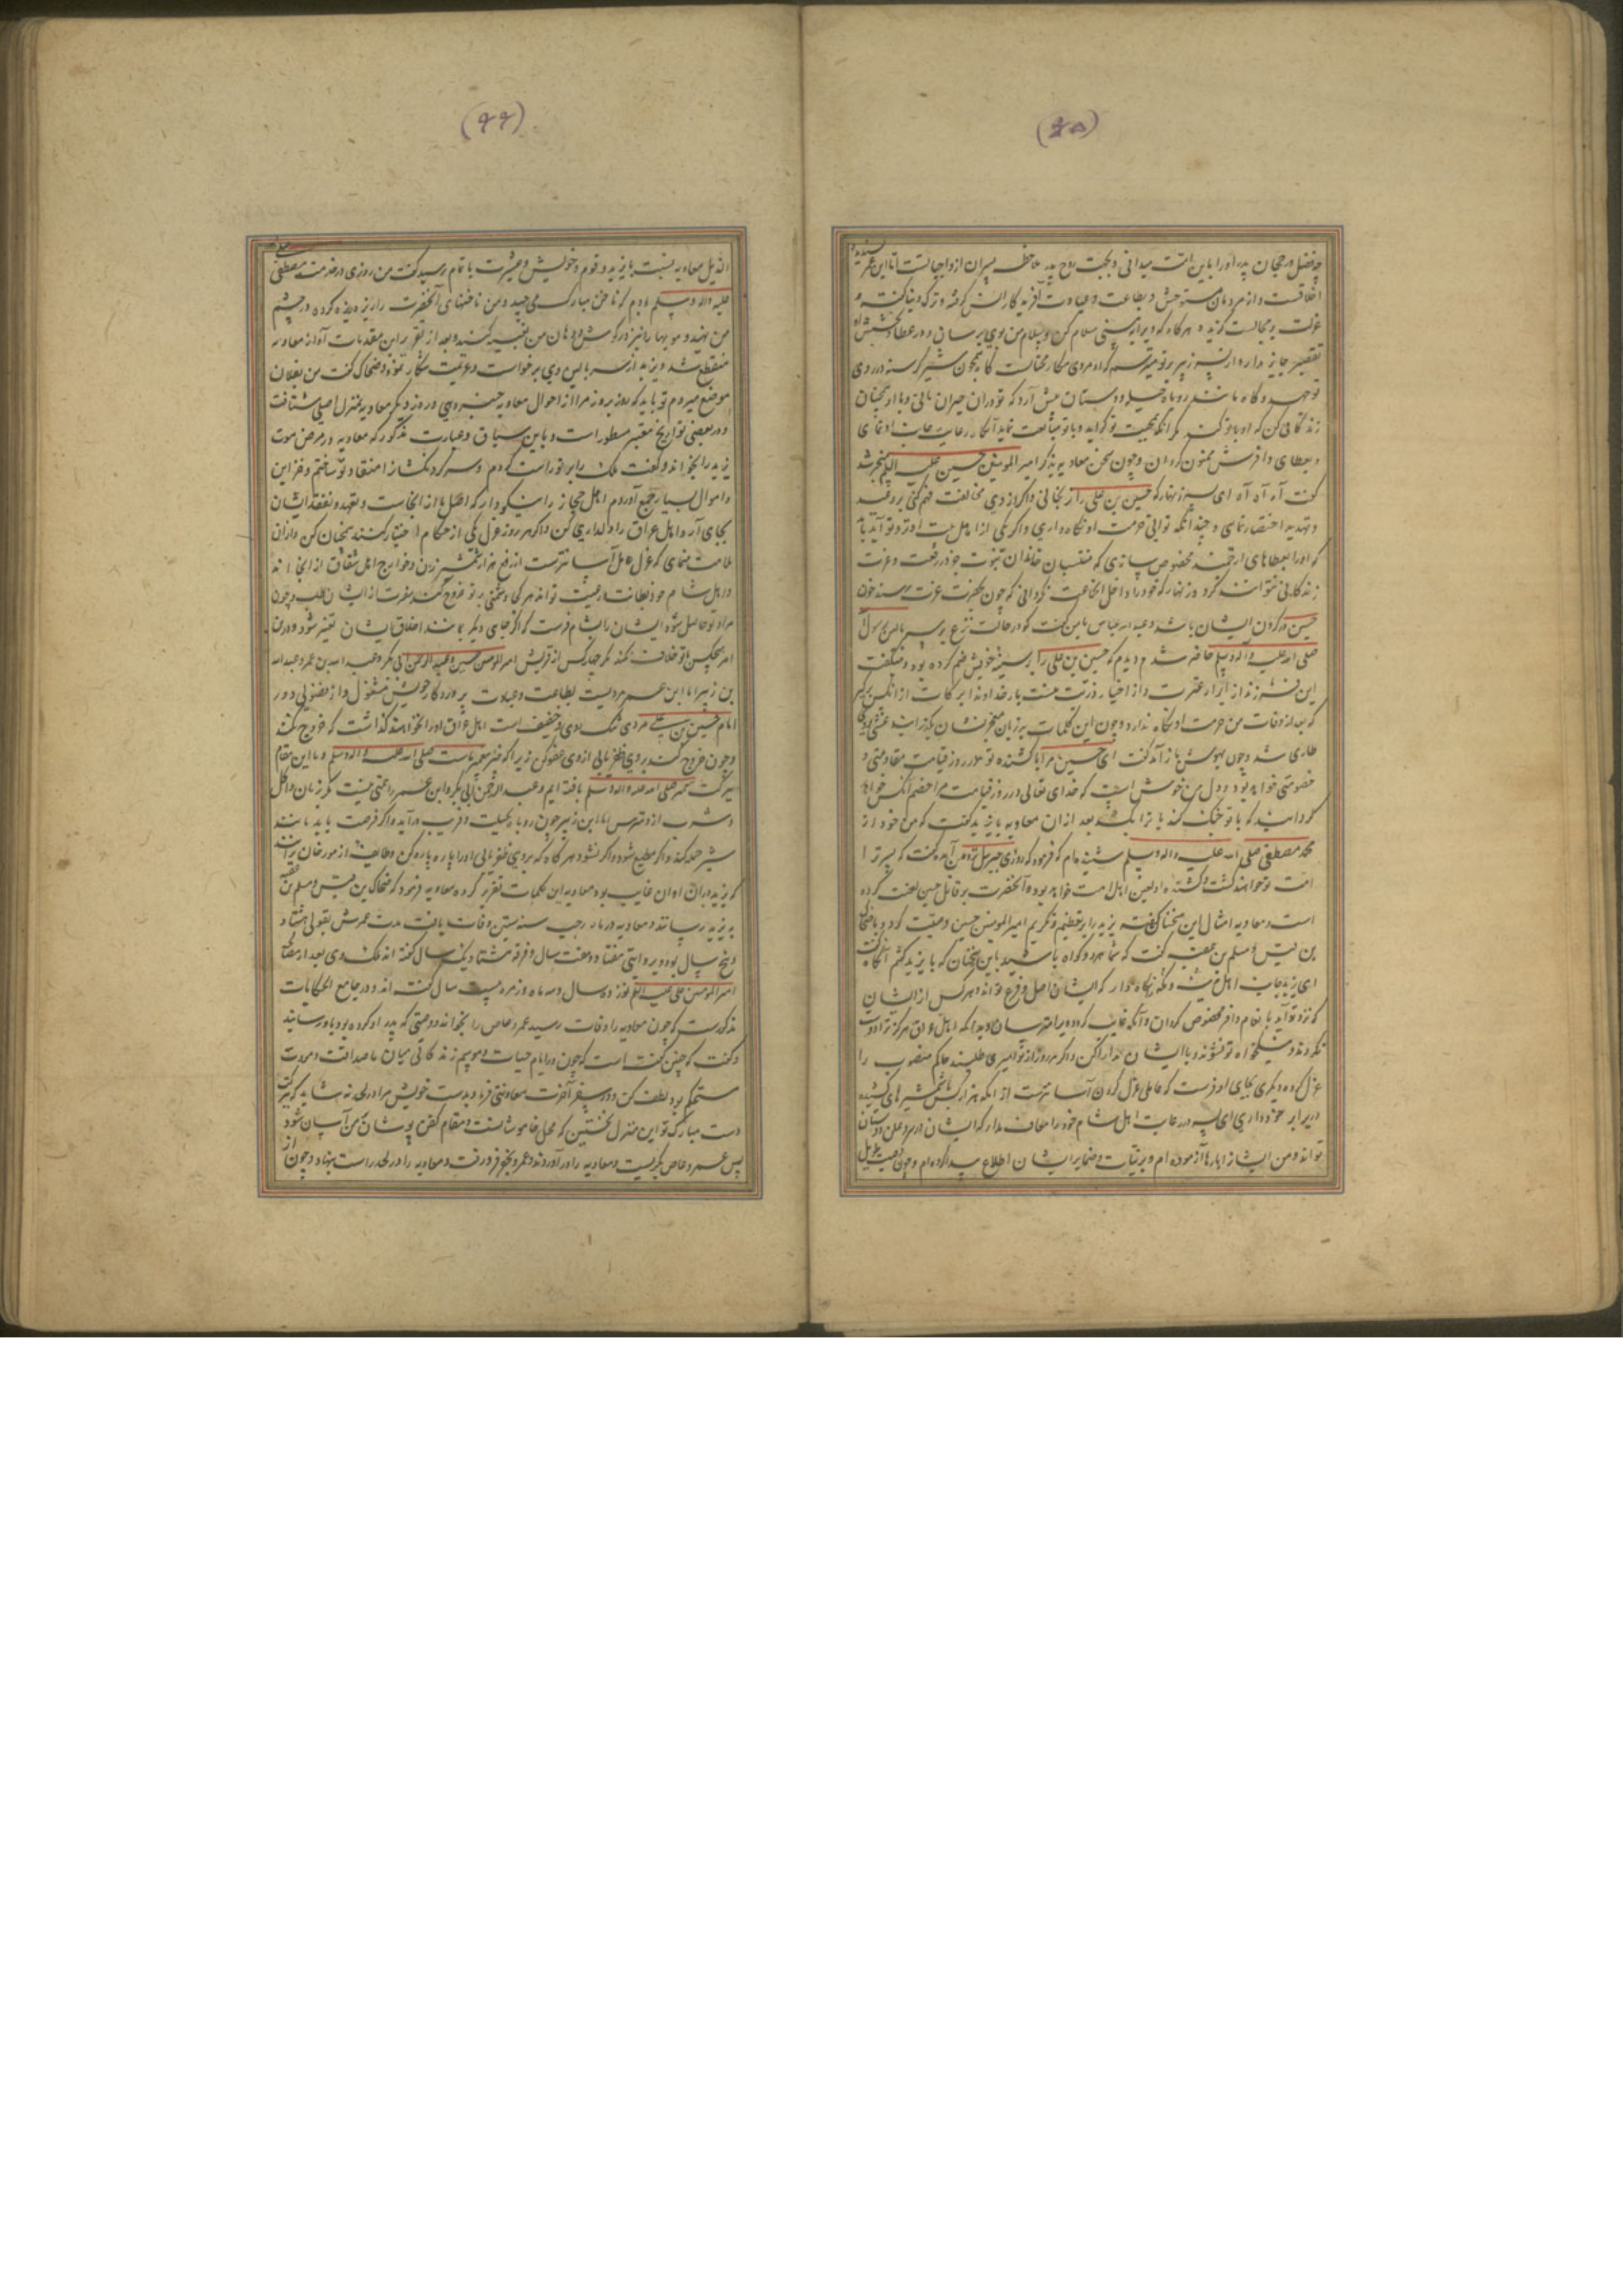 (۴۵)
چه فضل و رجحان پدر او را باین امت میدانی و بجهت روح پدر محافظه پسران از واجباتست اما ابن عمر
اخلاقست و از مردمان مستوحش و بطاعت و عبادت آفریدگار انس گرفته و ترک دنیا گفته و
عزلت و مجالست گزیده هرگاه که ویرا به بینی سلام کن و سلام من بوی برسان و در عطا و بخشش او
تقصیر جایز مدار و از پسر زبیر بر تو میترسم که او مردی مکار محتالست گاه همچون شیر گرسنه در روی
تو جهد و گاه مانند روباه حیله و دستان پیش آرد که تو در آن حیران مانی و با او همچنان
زندگانی کن که او با تو کند مگر آنکه بمحبت تو گراید و با تو متابعت نماید آنگاه رعایت جانب او نمای
و بعطای وافرش ممنون گردان و چون سخن معاویه بذکر امیرالمومنین حسین علیه السلام منجر شد
گفت آه آه آه ای پسر زنهار که حسین بن علی را نرنجانی و اگر از وی مخالفت فهم کنی بر وعید
و تهدید اختصار نمای و چندانکه توانی حرمت او نگاه داری و اگر یکی از اهل بیت او نزد تو آید باید
که او را بعطاهای ارجمند مخصوص سازی که منتسبان خاندان نبوت جز در رفعت و عزت
زندگانی نتوانند کرد و زنهار که خود را داخل آن جماعت نگردانی که چون بحضرت عزت رسند خون
حسین در گردن ایشان باشد و عبدالله عباس بامن گفت که در حالت نزع بر سر بالین رسول
صلی الله علیه و اله و سلم حاضر شدم دیدم که حسین بن علی را بسینه خویش ضم کرده بود و میگفت
این فرزند از ابرار عترت و از اخیار ذریت منست بار خداوندا برکات از آنکس برگیر
که بعد از وفات من حرمت او نگاه ندارد و چون این کلمات بر زبان معجز نشان بگذرانید غشی بر وی
طاری شد و چون بهوش باز آمد گفت ای حسین مرا با کشنده تو در روز قیامت مقاومتی و
خصومتی خواهد بود و دل من خوش است که خدای تعالی در روز قیامت مرا خصم آنکس خواهد
گردانید که با تو جنگ کند یا ترا بکشد بعد از آن معاویه با یزید گفت که من خود از
محمد مصطفی صلی الله علیه و اله و سلم شنیده ام که فرمود که روزی جبرئیل نزد من آمد و گفت که پسر ترا
امت تو خواهند کشت و کشنده او لعین اهل امت خواهد بود و آنحضرت بر قاتل حسین لعنت کرده
است و معاویه امثال این سخنان گفته یزید را بر تعظیم و تکریم امیرالمومنین حسین وصیت کرد و با ضحاک
بن قیس و مسلم بن عقبه گفت که شما هر دو گواه باشید باین سخنان که با یزید گفتم آنگاه گفت
ای یزید جانب اهل مکه نگاه دار که ایشان اصل و فرع تواند و هر کس از ایشان
که نزد تو آید بانعام وافر مخصوص گردان و آنکه غایب گردد ویرا بترسان و بدانکه اهل عراق هرگز ترا دوست
نگردند و نیکخواه تو نشوند با ایشان مدارا کن و اگر هر روز از تو امیری طلبند حاکم منصوب را
عزل کرده دیگری بجای او فرست که عاملی عزل کردن آسان ترست از آنکه هزار کس با شمشیرهای کشیده
در برابر خود داری ای پسر در رعایت اهل شام خود را معاف مدار که ایشان در سر و علن دوستان
تواند و من ایشانرا بارها آزموده ام و بر نیات و ضمایر ایشان اطلاع پیدا کرده ام و چون وصیت بدیل
(۴۴)
معاویه نسبت با یزید و قوم و خویش و عشیرت با تمام رسید گفت من روزی در خدمت مصطفی
علیه و اله و سلم بودم که ناخن مبارک می چید و من ناخنهای آنحضرت را ریزه ریزه کرده در چشم
من نهید و مویها را نیز در گوش و دهان من تعبیه کنید و بعد از تقریر این مقدمات آواز معاویه
منقطع شد و یزید از سر بالین وی برخاست و عزیمت شکار نمود و ضحاک گفت من بفلان
موضع میروم تو باید که روز بروز مرا از احوال معاویه خبر دهی و روز دیگر معاویه بمنزل اصلی شتافت
و در بعضی تواریخ معتبر مسطور است و باین سیاق و عبارت مذکور که معاویه در مرض موت
یزید را بخواند و گفت ملک را بر تو راست کردم و سرکردنکشانرا منقاد تو ساختم و خزاین
و اموال بسیار جمع آوردم اهل حجاز را نیکو دار که اصل ما از آنجاست و تعهد و تفقد ایشان
بجای آر و اهل عراق را دلداری کن و اگر هر روز عزل یکی از حکام اختیار کنند همچنان کن و از آن
ملامت منمای که عزل عامل آسان ترست از رفع هزار شمشیر زن و خوارج اهل شقاق از آنجا اند
و اهل شام خود بطانه و رعیت تواند هر گاه دشمنی بر تو خروج کند نصرت از ایشان طلب و چون
مراد تو حاصل شود ایشان را بشام فرست که اگر جای دیگر بمانند اخلاق ایشان تغییر شود و درین
امر هیچکس با تو خلاف نکند مگر چهار کس از قریش امیرالمومنین حسین و عبدالرحمن ابی بکر و عبدالله بن عمر و عبدالله
بن زبیر اما ابن عمر مردیست بطاعت و عبادت پروردگار خویش مشغول و از فضولی دور
امام حسین بن علی مردی سبک روی و خفیف است اهل عراق او را نخواهند گذاشت که خروج نکند
و چون خروج کند و بر وی ظفر یابی از وی عفو کن زیرا که فرزند پیغمبر ماست صلی الله علیه و اله و سلم و ما این مقام
ببرکت محمد صلی الله علیه و اله و سلم یافته ایم و عبدالرحمن ابی بکر و ابن عمر را همتی نیست مگر زنان و اکل
و شرب از او مترس اما ابن زبیر چون روباه بحیلت و فریب در آید و اگر فرصت یابد مانند
شیر حمله کند و اگر مطیع شود و اگر نشود هر گاه که بر وی ظفر یابی او را پاره پاره کن و طایفه از مورخان برآنند
که یزید در آن اوان غایب بود معاویه این کلمات تقریر کرده معاویه فرمود که ضحاک بن قیس و مسلم بن عقبه
به یزید رسانند و معاویه در ماه رجب سنه ستین وفات یافت مدت عمرش بقولی هفتاد
و پنج سال بود و بروایتی هفتاد و هفت سال و فرقه هشتاد و یک سال گفته اند ملک وی بعد از مصالحه
امیرالمومنین علیه السلام نوزده سال و سه ماه و زمره بیست سال گفته اند و در جامع الحکایات
مذکورست که چون معاویه را وفات رسید عمرو عاص را بخواند و وصیتی که پدر او کرده بود باو رسانید
و گفت که چنین گفته است که چون در ایام حیات و موسم زندگانی میان ما صداقت و مودت
مستحکم بود لطف کن و در سفر آخرت معاونتی فرما و بدست خویش مرا در لحد نه شاید که ببرکت
دست مبارک تو این منزل نخستین که محل خاموشانست و مقام کفن پوشان بر من آسان شود
پس عمرو عاص بگریست و معاویه را در آوردند و عمرو بقبر فرو رفت و معاویه را در لحد راست بنهاد و چون از